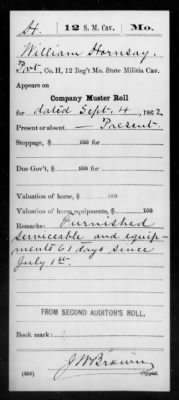 H. | 12 S. M. Cav. | Mo.
William Hornsay.
Pvt., Co. H, 12 Reg't Mo. State Militia Cav.
Appears on
Company Muster Roll
for dated Sept. 4, 1862.
Present or absent Present
Stoppage, $ 100 for
Due Gov't, $ 100 for
Valuation of horse, $ 100
Valuation of horse equipments, $ 100
Remarks: Furnished
serviceable and equip-
ments 61 days since
July 1st.
FROM SECOND AUDITOR'S ROLL.
Book mark:
J W Brown
(358) Copyist.